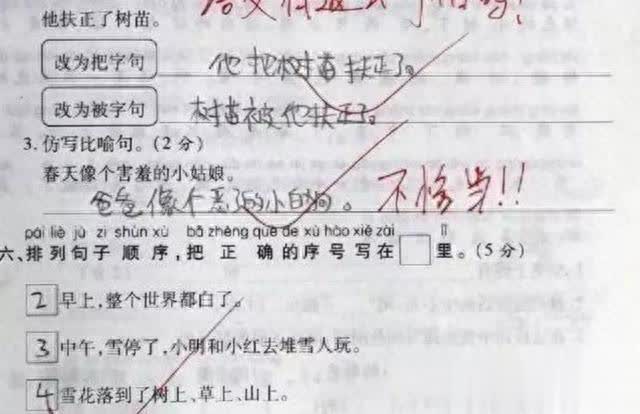 他扶正了树苗。
改为把字句 他把树苗扶正了。
改为被字句 树苗被他扶正了。
3.仿写比喻句。(2分)
春天像个害羞的小姑娘。
爸爸像个恶了的小白狗。 不恰当!!
pái liè jù zi shùn xù bǎ zhèng què de xù hào xiě zài lǐ
六、排列句子顺序,把正确的序号写在 里。(5分)
2 早上,整个世界都白了。
3 中午,雪停了,小明和小红去堆雪人玩。
4 雪花落到了树上、草上、山上。